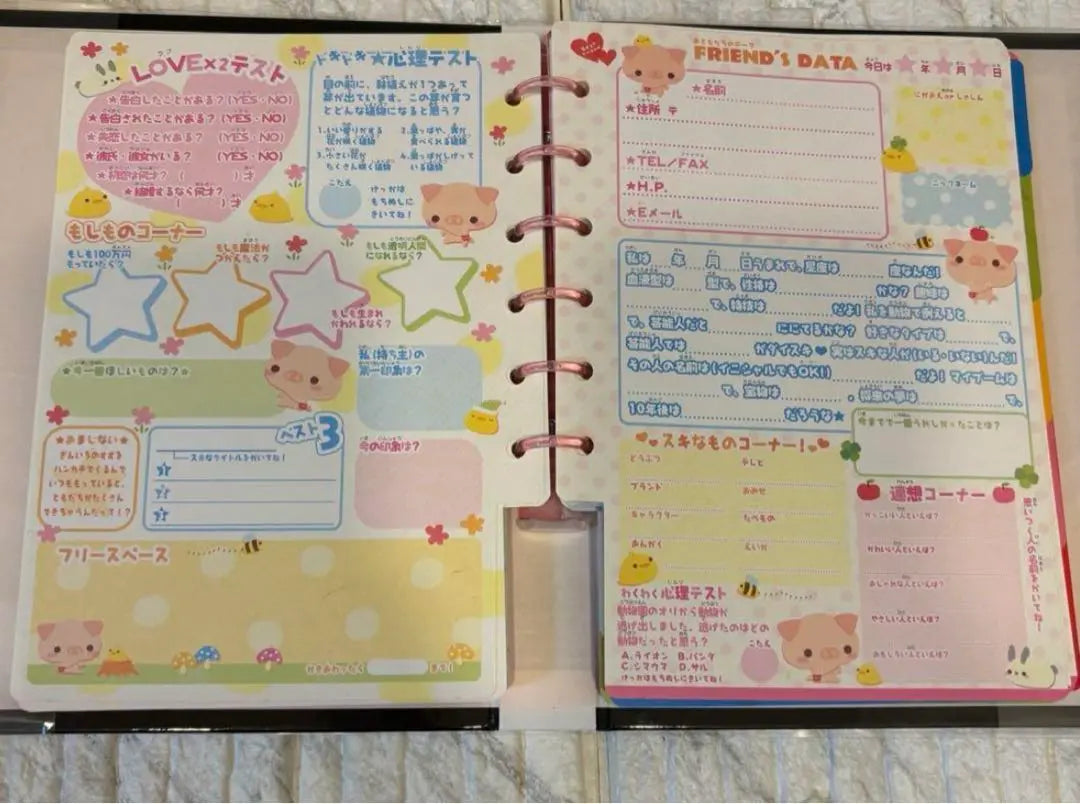 LOVE×2テスト
★告白したことがある?(YES・NO)
★告白されたことがある?(YES・NO)
★失恋したことある? (YES・NO)
★彼氏・彼女がいる? (YES・NO)
★初恋は何才? ( )才
★結婚するなら何才?
( )才
ドキドキ★心理テスト
目の前に、鉢植えが1つあって
芽が出ています。この芽が育つ
とどんな植物になると思う?
1.いい香りがする
花が咲く植物
2.葉っぱや、実が
食べられる植物
3.小さい花が
たくさん咲く植物
4.葉っぱがしげって
いる植物
こたえ
けっかは
もちぬしに
きいてね!
もしものコーナー
もしも100万円
もっていたら?
もしも魔法が
つかえたら?
もしも生まれ
かわれるなら?
もしも透明人間
になれるなら?
★今一番ほしいものは?★
私(持ち主)の
第一印象は?
★おまじない★
ぎんいろのすずを
ハンカチでくるんで
いつももっていると、
ともだちがたくさん
できちゃうんだって!
ベスト3
スキなタイトルをかいてね!
1
2
3
今の印象は?
フリースペース
かきおわったら
まで!
おともだちのデータ
FRIEND'S DATA
今日は★年★月★日
★名前
★住所 〒
★TEL/FAX
★H.P.
★Eメール
にがおえorしゃしん
ニックネーム
私は 年 月 日うまれで、星座は 座なんだ!
血液型は 型で、性格は かな? 趣味は
で、特技は だよ! 私を動物で例えると
で、芸能人だと ににてるかな? 好きなタイプは で、
芸能人では がダイスキ♥実はスキな人が(いる・いない)んだ!
その人の名前は(イニシャルでもOK!) だよ! マイブームは
で、宝物は 。将来の夢は で、
10年後は だろうな★
スキなものコーナー!
どうぶつ
テレビ
ブランド
おみせ
キャラクター
たべもの
おんがく
えいが
今までで一番うれしかったことは?
連想コーナー
思いつく人の名前をかいてね!
かっこいい人といえば?
かわいい人といえば?
おしゃれな人といえば?
やさしい人といえば?
おもしろい人といえば?
わくわく心理テスト
動物園のオリから動物が
逃げ出しました。逃げたのはどの
動物だったと思う?
A.ライオン B.パンダ
C.シマウマ D.サル
けっかはもちぬしにきいてね!
こたえ